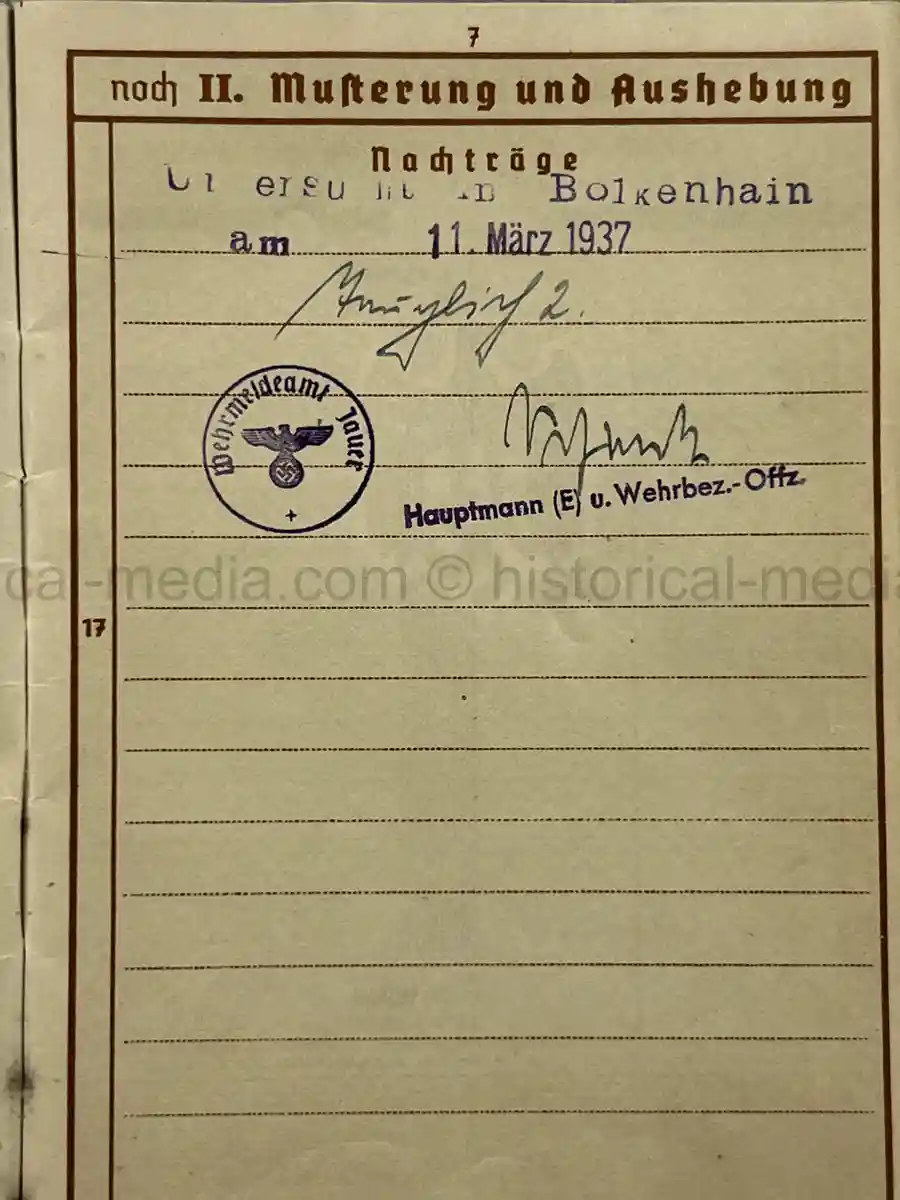 7
noch II. Musterung und Aushebung
Nachträge
in Bolkenhain
am 11. März 1937
Tauglich 2.
Wehrmeldeamt Jauer
Hauptmann (E) u. Wehrbez.-Offz.
cal-media.com © historical-media
17